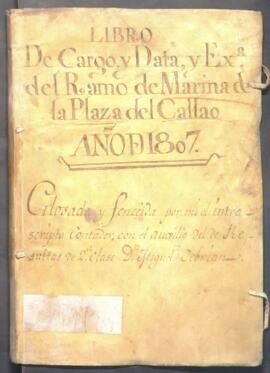 LIBRO
De Cargo, y Data, y Exª
del Ramo de Marina de
la Plaza del Callao
AÑO D 1807.
Glosada y fenecida por mi el infra
scripto Contador, con el auxilio del de Re-
sultas de 2ª Clase Dn Miguel Cebrian